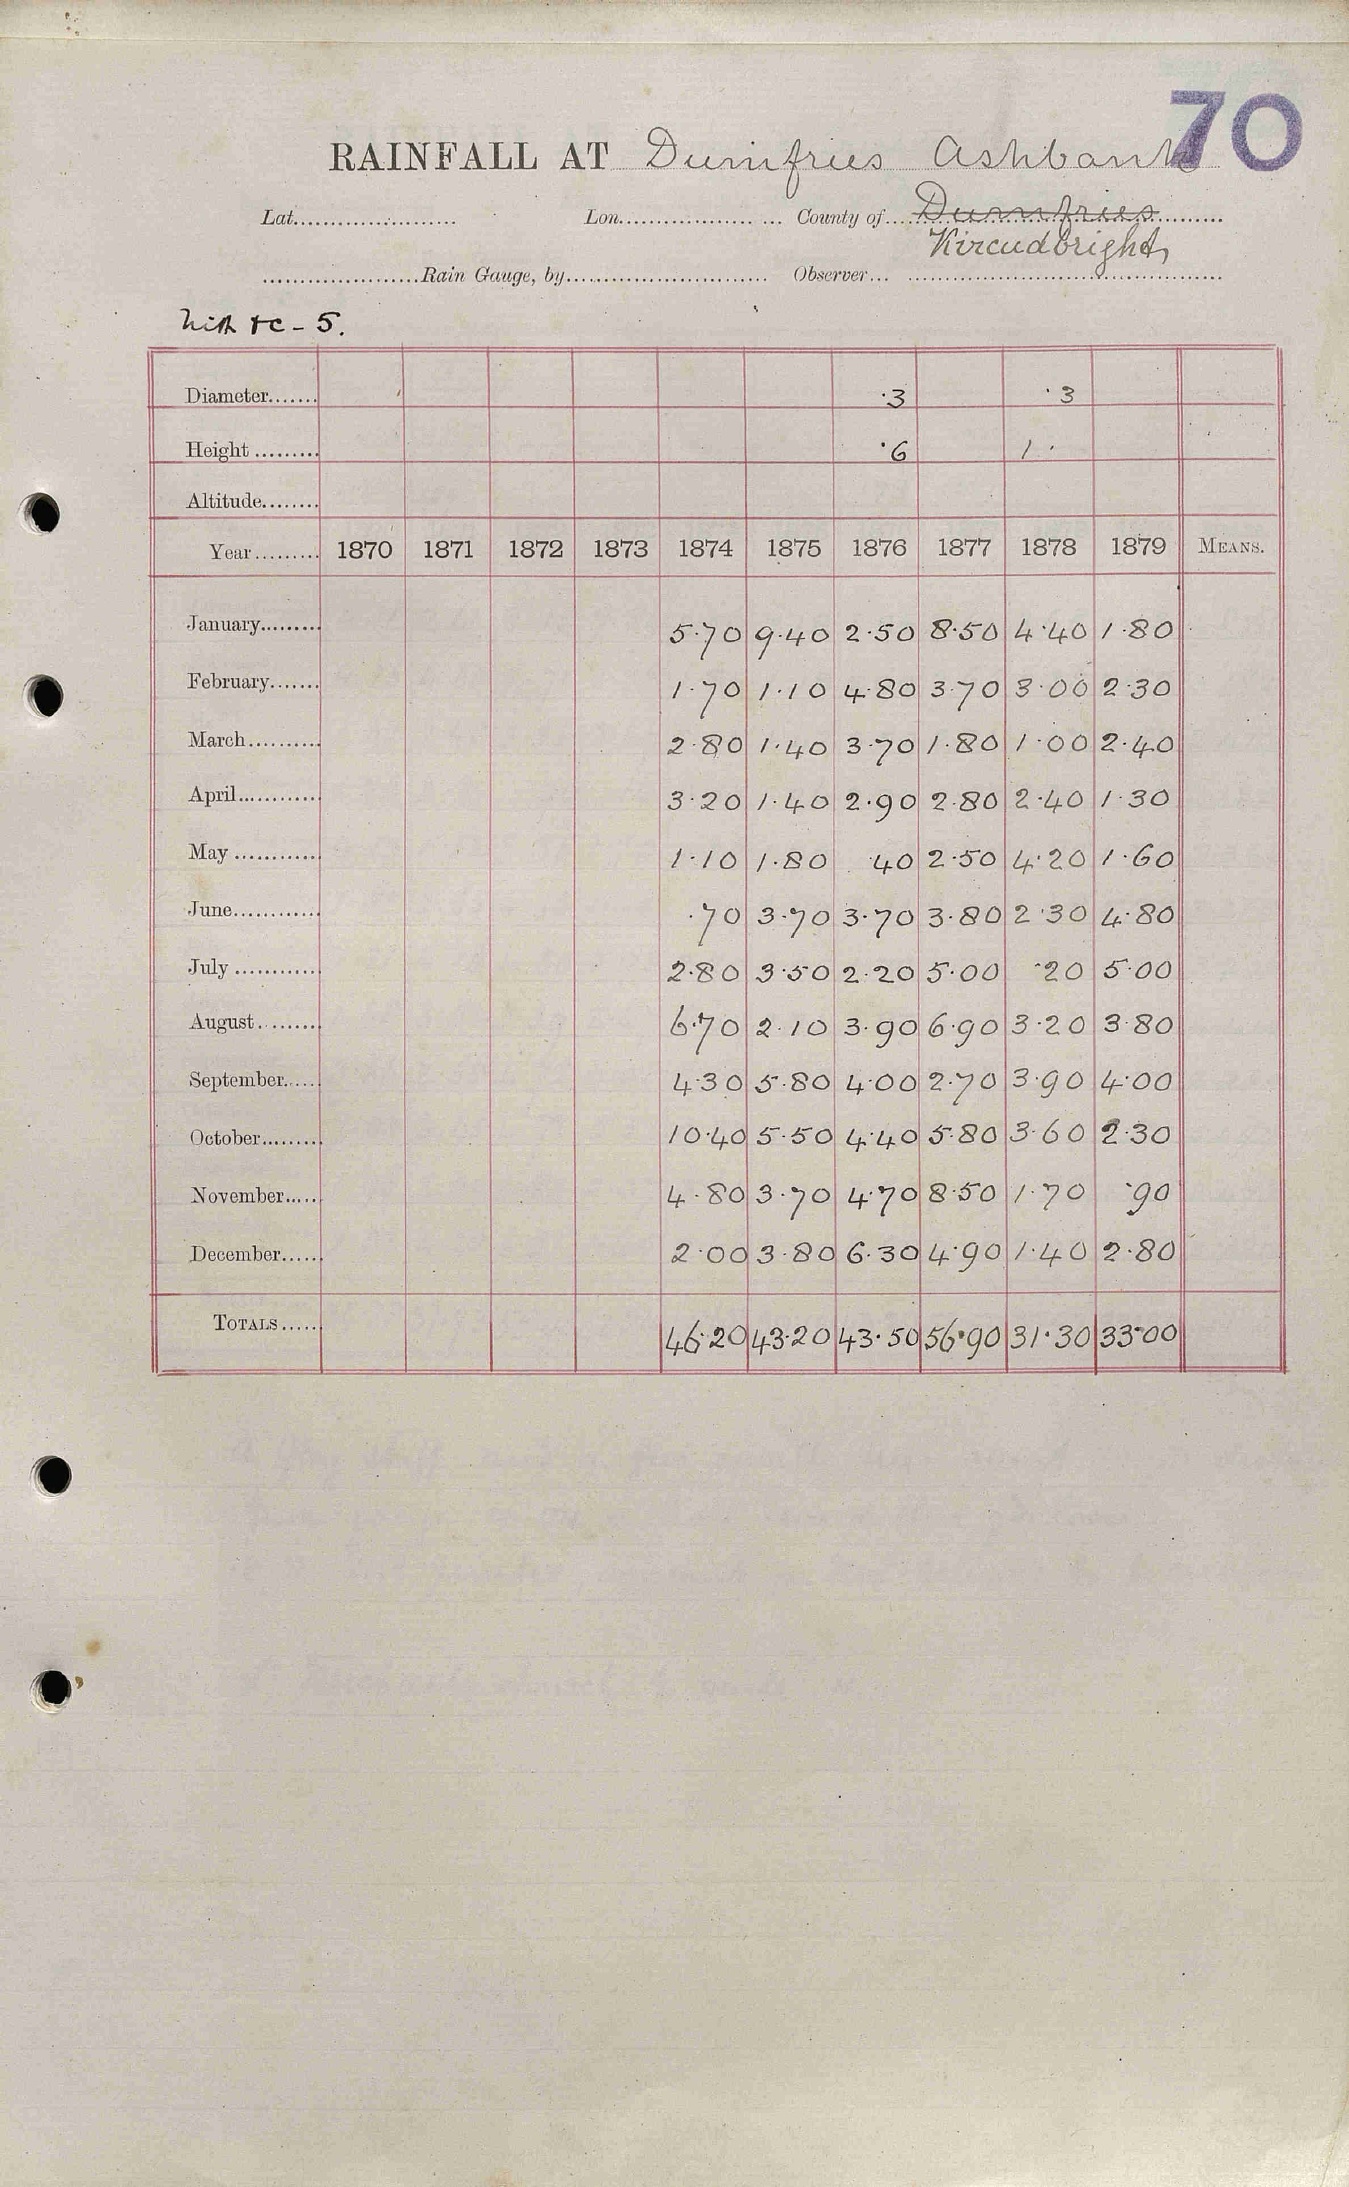 70
RAINFALL AT Dumfries Ashbank
Lat. Lon. County of Dumfries
Kircudbright
Rain Gauge, by Observer
Nith &c - 5.
Diameter ·3 ·3
Height ·6 1 ·
Altitude
Year 1870 1871 1872 1873 1874 1875 1876 1877 1878 1879 MEANS.
January 5·70 9·40 2·50 8·50 4·40 1·80
February 1·70 1·10 4·80 3·70 3·00 2·30
March 2·80 1·40 3·70 1·80 1·00 2·40
April 3·20 1·40 2·90 2·80 2·40 1·30
May 1·10 1·80 ·40 2·50 4·20 1·60
June ·70 3·70 3·70 3·80 2·30 4·80
July 2·80 3·50 2·20 5·00 ·20 5·00
August 6·70 2·10 3·90 6·90 3·20 3·80
September 4·30 5·80 4·00 2·70 3·90 4·00
October 10·40 5·50 4·40 5·80 3·60 2·30
November 4·80 3·70 4·70 8·50 1·70 ·90
December 2·00 3·80 6·30 4·90 1·40 2·80
TOTALS 46·20 43·20 43·50 56·90 31·30 33·00